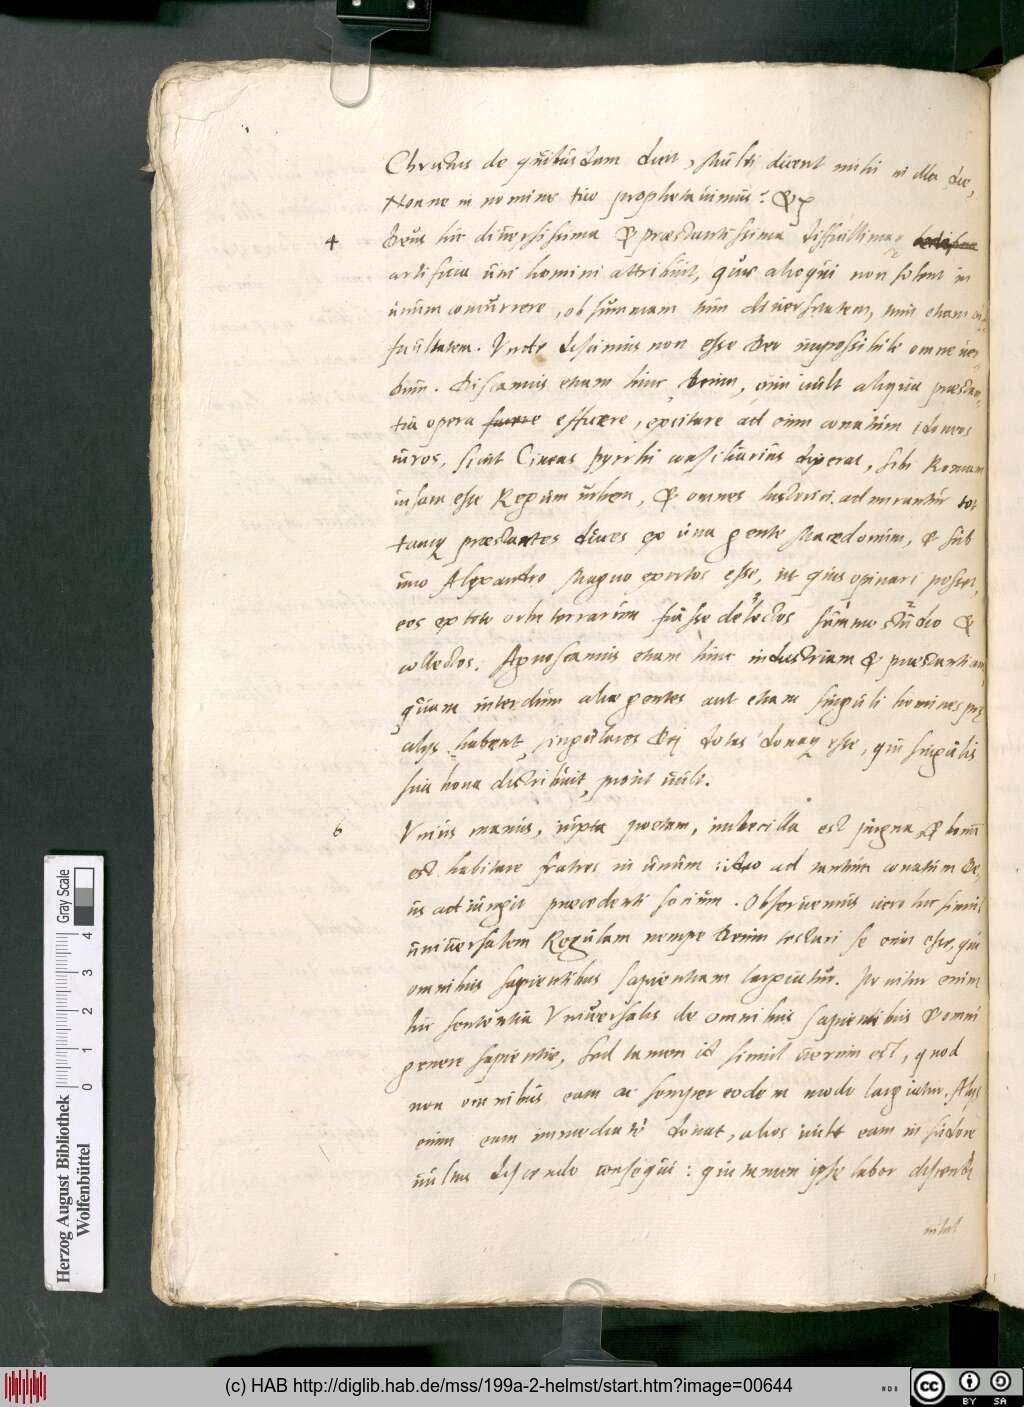 Christus de quibusdam dicit, Multi dicent mihi in illa die,
Nonne in nomine tuo prophetavimus? &c
4 Deus hic diversissima & præstantissima difficillimaq
artificia uni homini attribuit, quæ alioqui non solent in
unum concurrere, ob summam tum diversitatem, tum etiam
facultatem. Unde discimus non esse Deo impossibile omne ver-
bum. Discamus etiam hinc Deum, cum vult aliqua præstan-
tia opera facere efficere, excitare ad eum conatum idoneos
viros, sicut Cineas Pyrrhi consiliarius dixerat, sibi Romam
visam esse Regum urbem, & omnes historici admirantur tot
tantosq præstantes duces ex una gente Macedonum, & sub
uno Alexandro Magno exortos esse, ut quis opinari posset,
eos ex toto orbe terrarum fuisse delectos summo studio &
collectos. Agnoscamus etiam hinc industriam & præstantiam,
quam interdum aliæ gentes aut etiam singuli homines præ
alijs habent, singulares Dei dotes donaq esse, qui singulis
sua bona distribuit, prout vult.
6 Unius manus, iuxta poetam, imbecilla est pugna, & bonum
est habitare fratres in unum: ideo ad tantum conatum De,
us adiungit præcedenti socium. Observemus vero hic simul
universalem Regulam nempe Deum testari se eum esse, qui
omnibus sapientibus sapientiam largiatur. Ponitur enim
hic sententia Universalis de omnibus sapientibus & omni
genere sapientiæ, sed tamen id simul verum est, quod
non omnibus eam ac semper eodem modo largiatur. Alijs
enim eam immediate donat, alios vult eam in sudore
vultus discendo consequi: qui tamen ipse labor discendi
nihil
Herzog August Bibliothek
Wolfenbüttel
0 1 2 3 4
Gray Scale
(c) HAB http://diglib.hab.de/mss/199a-2-helmst/start.htm?image=00644
cc BY SA